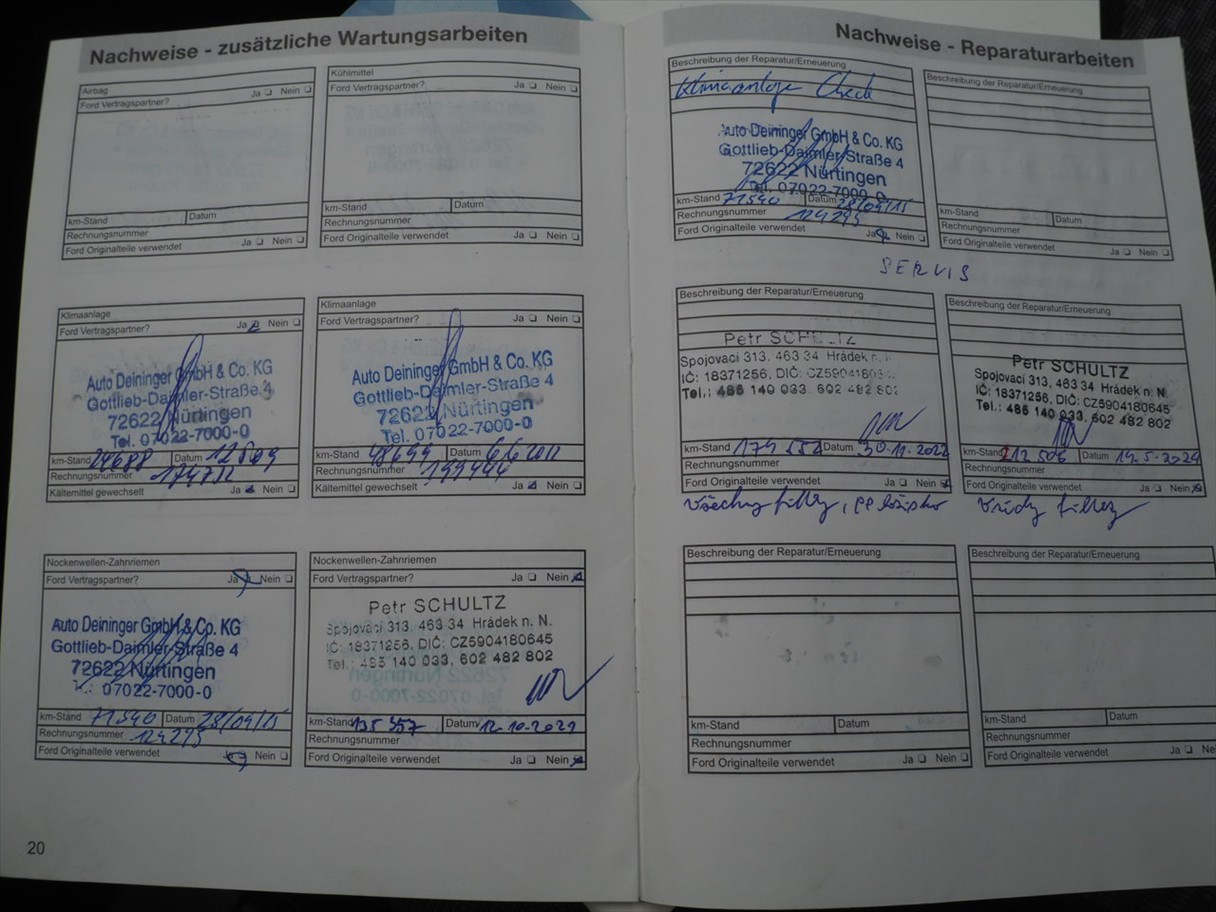 Nachweise - zusätzliche Wartungsarbeiten
Airbag
Ford Vertragspartner? Ja Nein
km-Stand Datum
Rechnungsnummer
Ford Originalteile verwendet Ja Nein
Kühlmittel
Ford Vertragspartner? Ja Nein
km-Stand Datum
Rechnungsnummer
Ford Originalteile verwendet Ja Nein
Klimaanlage
Ford Vertragspartner? Ja Nein
Auto Deininger GmbH & Co. KG
Gottlieb-Daimler-Straße 4
72622 Nürtingen
Tel. 07022-7000-0
km-Stand 24688 Datum
Rechnungsnummer
Kältemittel gewechselt Ja Nein
Klimaanlage
Ford Vertragspartner? Ja Nein
Auto Deininger GmbH & Co. KG
Gottlieb-Daimler-Straße 4
72622 Nürtingen
Tel. 07022-7000-0
km-Stand Datum
Rechnungsnummer
Kältemittel gewechselt Ja Nein
Nockenwellen-Zahnriemen
Ford Vertragspartner? Ja Nein
Auto Deininger GmbH & Co. KG
Gottlieb-Daimler-Straße 4
72622 Nürtingen
07022-7000-0
km-Stand 71540 Datum 28/04/15
Rechnungsnummer 124295
Ford Originalteile verwendet Ja Nein
Nockenwellen-Zahnriemen
Ford Vertragspartner? Ja Nein
Petr SCHULTZ
Spojovací 313, 463 34 Hrádek n. N.
IČ: 18371256, DIČ: CZ5904180645
Tel.: 485 140 033, 602 482 802
km-Stand 135 357 Datum 12-10-2021
Rechnungsnummer
Ford Originalteile verwendet Ja Nein
20
Nachweise - Reparaturarbeiten
Beschreibung der Reparatur/Erneuerung
Klimaanlage Check
Auto Deininger GmbH & Co. KG
Gottlieb-Daimler-Straße 4
72622 Nürtingen
Tel. 07022-7000-0
km-Stand 71540 Datum 28/04/15
Rechnungsnummer 124295
Ford Originalteile verwendet Ja Nein
Beschreibung der Reparatur/Erneuerung
km-Stand Datum
Rechnungsnummer
Ford Originalteile verwendet Ja Nein
SERVIS
Beschreibung der Reparatur/Erneuerung
Petr SCHULTZ
Spojovací 313, 463 34 Hrádek n.
IČ: 18371256, DIČ:
Tel.: 485 140 033, 602 482 802
km-Stand 179 552 Datum 30-11-2022
Rechnungsnummer
Ford Originalteile verwendet Ja Nein
Beschreibung der Reparatur/Erneuerung
Petr SCHULTZ
Spojovací 313, 463 34 Hrádek n. N.
IČ: 18371256, DIČ: CZ5904180645
Tel.: 485 140 033, 602 482 802
km-Stand 212 506 Datum 14-5-2024
Rechnungsnummer
Ford Originalteile verwendet Ja Nein
Beschreibung der Reparatur/Erneuerung
km-Stand Datum
Rechnungsnummer
Ford Originalteile verwendet Ja Nein
Beschreibung der Reparatur/Erneuerung
km-Stand Datum
Rechnungsnummer
Ford Originalteile verwendet Ja